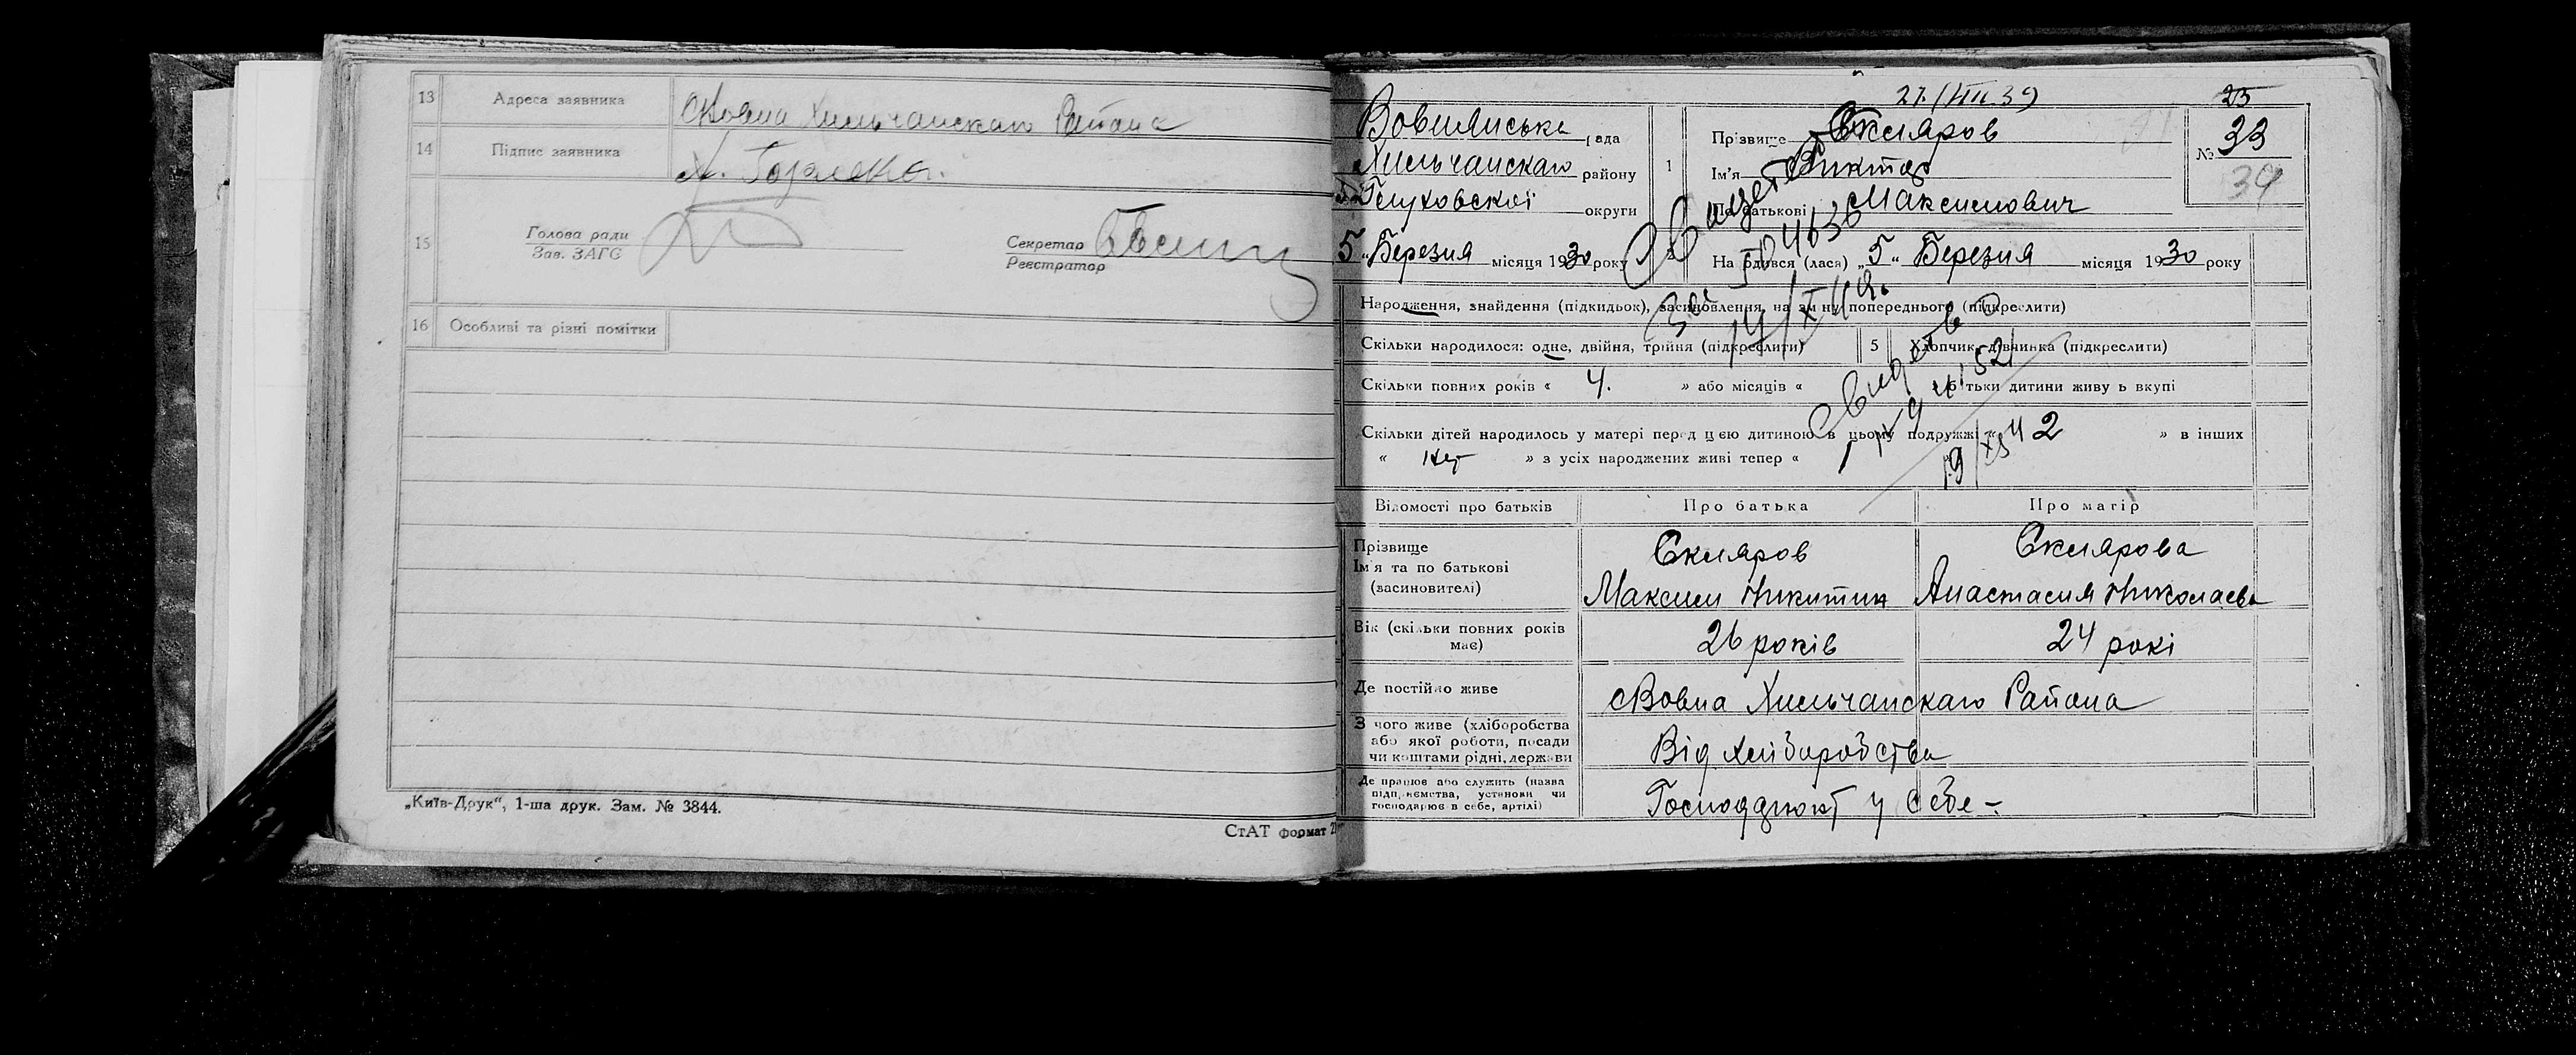 13 Адреса заявника сВовна Хильчанскаго Района
14 Підпис заявника
15 Голова ради
Зав. ЗАГС
Секретар
Реєстратор
16 Особливі та різні помітки
„Київ-Друк“, 1-ша друк. Зам. № 3844.
СтАТ формат
25
Вовнянська рада
Хильчанскаго району
Глуховскої округи
1 Прізвище Скляров
Ім'я Виктор
По батькові Максимович
№ 33
34
5 „ Березня місяця 1930 року
Народився (лася) „5“ Березня місяця 1930 року
Народження, знайдення (підкидьок), засиновлення, на зміну попереднього (підкреслити)
Скільки народилося: одне, двійня, трійня (підкреслити)
5 Хлопчик, дівчинка (підкреслити)
Скільки повних років « 4. » або місяців « батьки дитини живуть вкупі
Скільки дітей народилось у матері перед цією дитиною: в цьому подружжі « » в інших
« нет » з усіх народжених живі тепер «
Відомості про батьків Про батька Про матір
Прізвище
Ім'я та по батькові
(засиновителі)
Скляров Склярова
Максим Никитин Анастасия Николаева
Вік (скільки повних років має) 26 років 24 рокі
Де постійно живе сВовна Хильчанскаго Района
З чого живе (хліборобства
або якої роботи, посади
чи коштами рідні, держави
Від хлиборобства
Де працює або служить (назва
підприємства, установи чи
господарює в себе, артілі)
у себе -